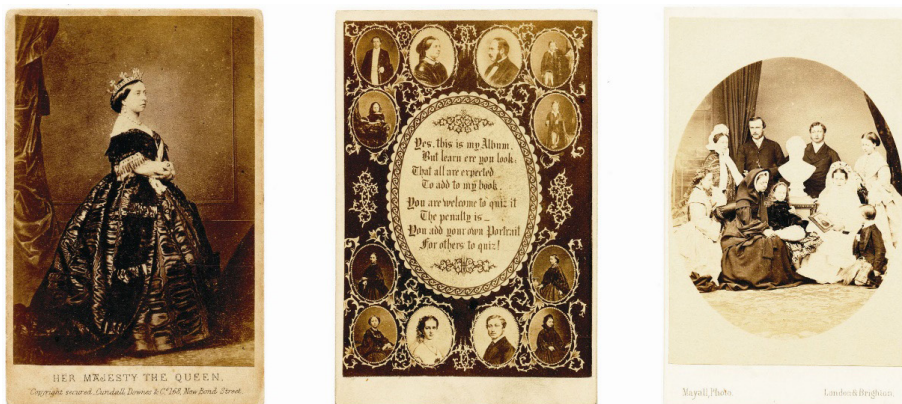 HER MAJESTY THE QUEEN.
Copyright secured, Cundall, Downes & Co. 168, New Bond Street.
Yes, this is my Album,
But learn ere you look,
That all are expected
To add to my book.
You are welcome to quiz it
The penalty is_
You add your own Portrait
For others to quiz!
Mayall, Photo.
London & Brighton.